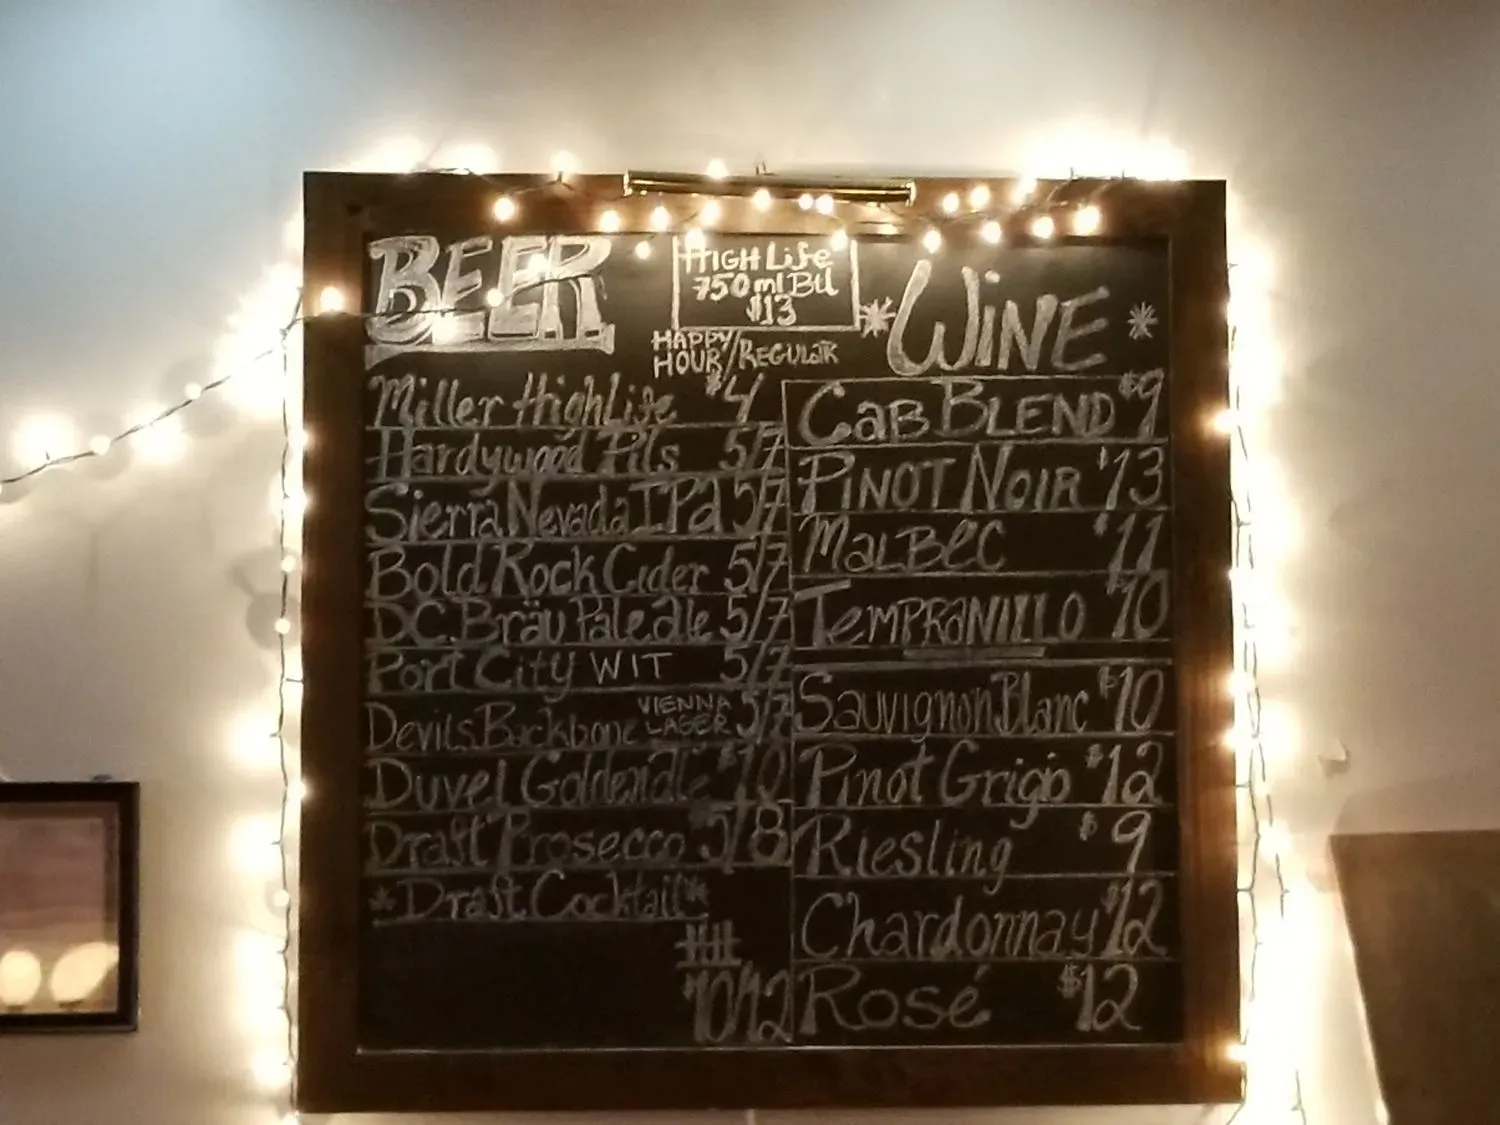 BEER
HIGH Life
750 ml Btl
$13
HAPPY
HOUR/REGULAR
Miller HighLife $4
Hardywood Pils 5/7
Sierra Nevada IPA 5/7
Bold Rock Cider 5/7
DC.Bräu Pale ale 5/7
Port City WIT 5/7
Devils Backbone VIENNA LAGER 5/7
Duvel Goldenale $10
Draft Prosecco $5/8
*Draft Cocktail*
HH
$10/12
* WINE *
CAB BLEND $9
PINOT NOIR $13
MALBEC $11
TEMPRANILLO $10
Sauvignon Blanc $10
Pinot Grigio $12
Riesling $9
Chardonnay $12
Rosé $12